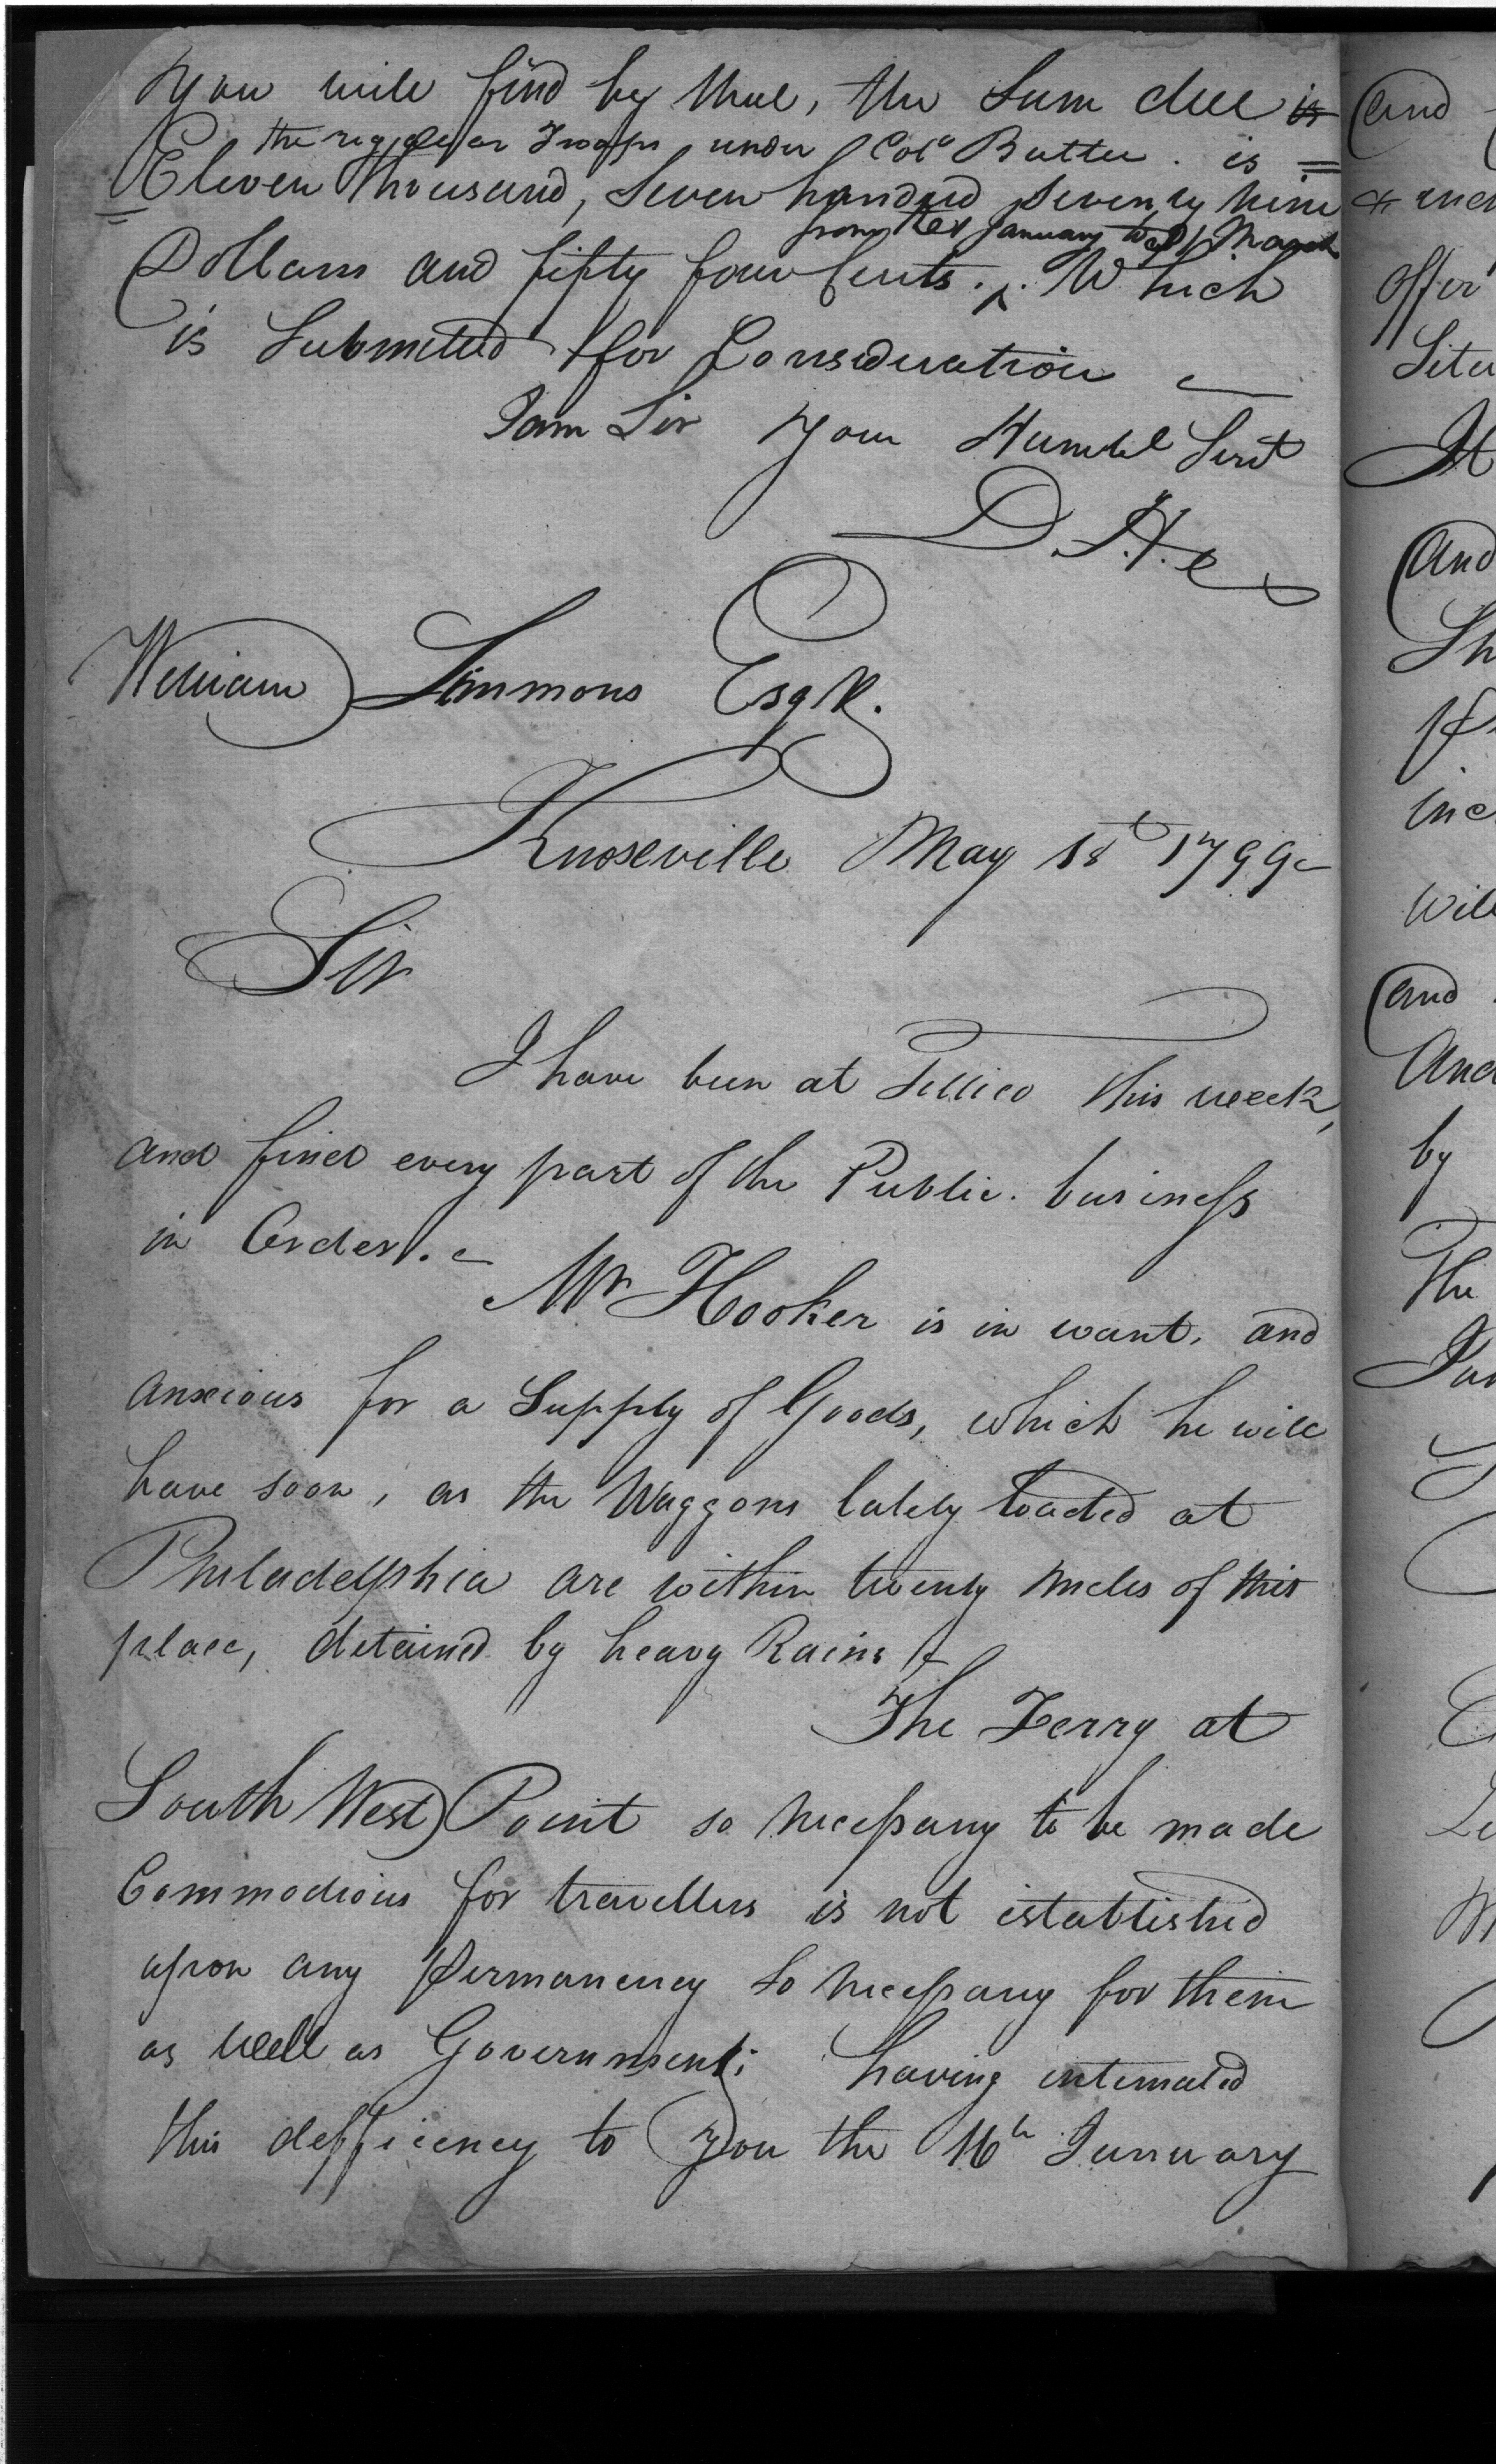 You will find by thee, the Sum due is
the regular Troops under Col° Butler. is =
Eleven Thousand, Seven handred Seventy nine
from the 1 January to 31 March
Dollars and fifty four Cents. ^. Which
is Submitted for Consideration
I am Sir your Humbl Servt
D. H.
William Simmons Esqr.
Knoxville May 18t 1799
Sir
I have been at Tellico this week,
and find every part of the Public. business
in Order.
Mr Hooker is in want, and
anxious for a Supply of Goods, which he will
have soon, as the Waggons lately loaded at
Philadelphia are within twenty miles of this
place, detained by heavy Rains
The Ferry at
South West Point so necessary to be made
Commodious for travellers is not established
upon any permanency so necessary for them
as well as Government; having intimated
this defficiency to you the 16h January
and
offer
It
and
Sh
inc
Will
and
And
by
The